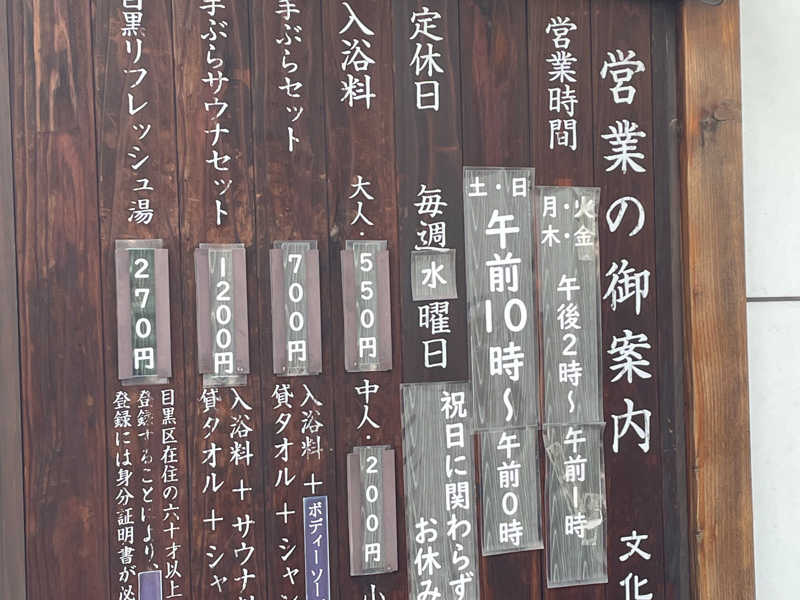 営業の御案内
文化
営業時間
月・火・木・金 午後2時～午前1時
土・日 午前10時～午前0時
定休日
毎週水曜日
祝日に関わらずお休み
入浴料
大人・550円
中人・200円
小
手ぶらセット
700円
入浴料＋ボディーソー
貸タオル＋シャン
手ぶらサウナセット
1200円
入浴料＋サウナ
貸タオル＋シャ
目黒リフレッシュ湯
270円
目黒区在住の六十才以上
登録することにより、
登録には身分証明書が必